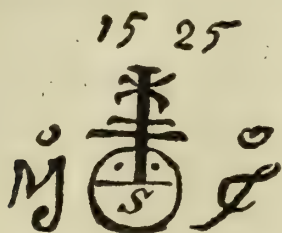 15 25
M S